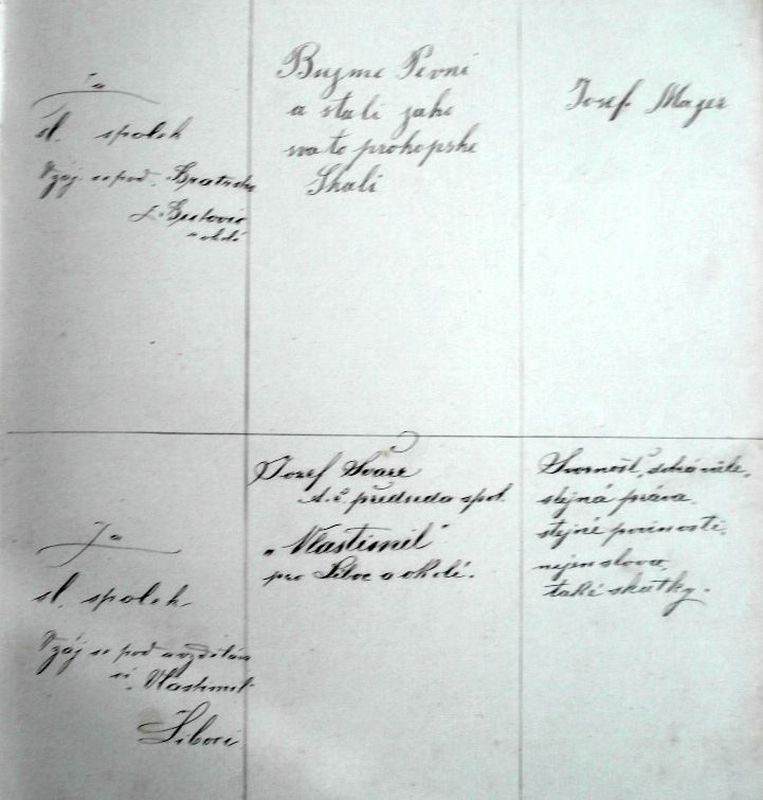 Za
sl. spolek
Vzáj. se pod. Bratrske
z Butovic
a okolí
Buďme Pevni
a stali jako
svato prokopske
Skali
Josef Mayer
Za
sl. spolek
Vzáj se pod a vzdělán
cí. Vlastimil
Liboci
Jozef Svárc
t. č. předseda spol.
„Vlastimil"
pro Liboc a okolí.
Svornost,
stejná práva
stejné povinosti,
nejen slova,
také skutky.